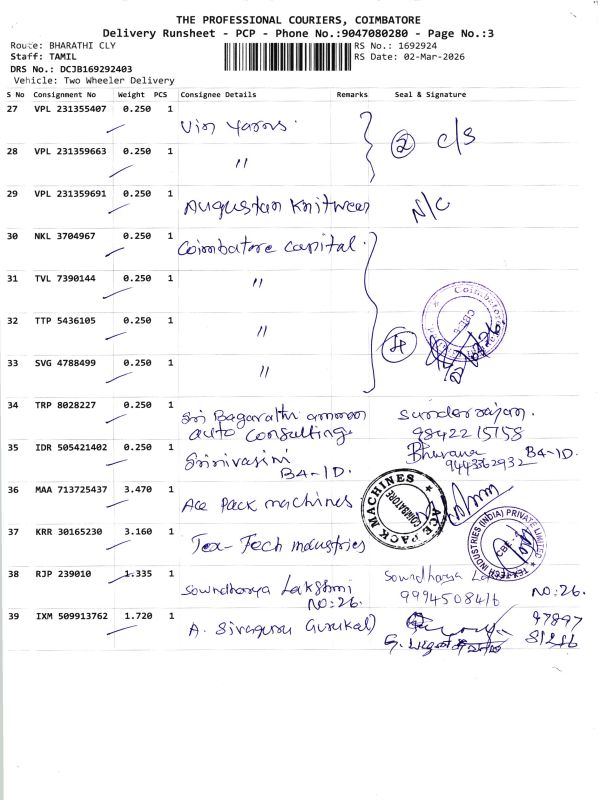 THE PROFESSIONAL COURIERS, COIMBATORE
Delivery Runsheet - PCP - Phone No.:9047080280 - Page No.:3
Route: BHARATHI CLY
RS No.: 1692924
Staff: TAMIL
RS Date: 02-Mar-2026
DRS No.: DCJB169292403
Vehicle: Two Wheeler Delivery
S No Consignment No Weight PCS Consignee Details Remarks Seal & Signature
27 VPL 231355407 0.250 1 Vin Yarns. ② C/S
28 VPL 231359663 0.250 1 "
29 VPL 231359691 0.250 1 Augustan Knitwear N/C
30 NKL 3704967 0.250 1 Coimbatore Capital.
31 TVL 7390144 0.250 1 "
32 TTP 5436105 0.250 1 " ④ Coimbatore
33 SVG 4788499 0.250 1 "
34 TRP 8028227 0.250 1 Sri Bagarathi amman Sundarrajan.
auto Consulting 9842215158
35 IDR 505421402 0.250 1 Srinivasini Bhuvana B4-1D.
B4-1D. 9443362932
36 MAA 713725437 3.470 1 Ace Pack machines ACE PACK MACHINES COIMBATORE
37 KRR 30165230 3.160 1 Tex-Tech industries TEX-TECH INDUSTRIES (INDIA) PRIVATE LIMITED
38 RJP 239010 1.335 1 Sowndharya Lakshmi Sowndharya
NO:26. 9994508416 NO:26.
39 IXM 509913762 1.720 1 A. Sivaguru Gurukal 97897